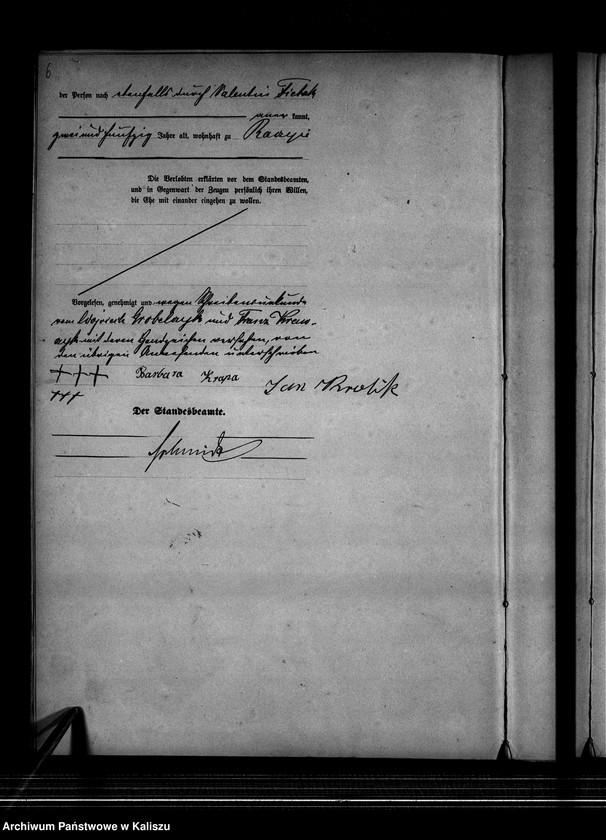 6
der Person nach ebenfalls durch Valentin Fietak
aner kannt,
zweiundfunfzig Jahre alt, wohnhaft zu
Die Verlobten erklärten vor dem Standesbeamten,
und in Gegenwart der Zeugen persönlich ihren Willen,
die Ehe mit einander eingehen zu wollen.
Vorgelesen, genehmigt und wegen Schreibensunkunde
vom Wojciech Grobelny und Franz
mit deren Handzeichen versehen, von
den übrigen Anwesenden unterschrieben
+++ Barbara Krapa Jan Krolik
+++
Der Standesbeamte.
Schmidt
Archiwum Państwowe w Kaliszu